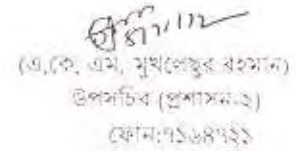 (এ,কে, এম, মুখলেছুর রহমান)
উপসচিব (প্রশাসন-২)
ফোন:৭১৬৪৭২১